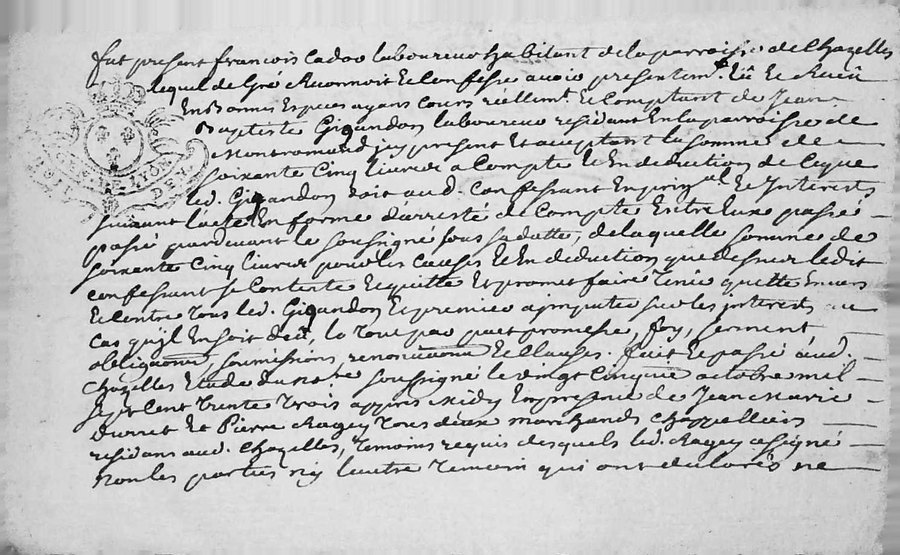 fut present francois Cadao laboureur habitant de la parroisse de Chazelles
lequel de gré a reconnoit et confesse avoir presentemt. eû et receû
en bonnes especes ayans cours réellemt. et comptant de Jean
Baptiste Girandon laboureur residant en la parroisse de
Montromand icy present et acceptant la somme de
soixante cinq livres a compte et en deduction de ce que
led. Girandon doit aud. confessant en prinpal et Interests
suivant l'acte en forme d'arresté de compte entre eux passé
passé pardevant le soussigné sous sa datte, de laquelle somme de
soixante cinq livres pour les causes et en deduction que dessus ledit
confessant se contente et quitte et promet faire tenir quitte envers
et contre tous led. Girandon et premier a imputer sur les interests au
cas qu'il en soit deû, le tout par pact promesse, foy, serment
obligaons, soumissions, renonciaons et clauses. fait et passé aud.
Chazelles Etude du nore. soussigné le vingt cinquie octobre mil
sept cent trente trois appres midy en presence de Jean Marie
durret et Pierre Ragey tous deux marchands chappelliers
residans aud. Chazelles, temoins requis desquels led. Ragey a signé
non les parties ny l'autre temoin qui ont declarés ne
GENER LYON DE